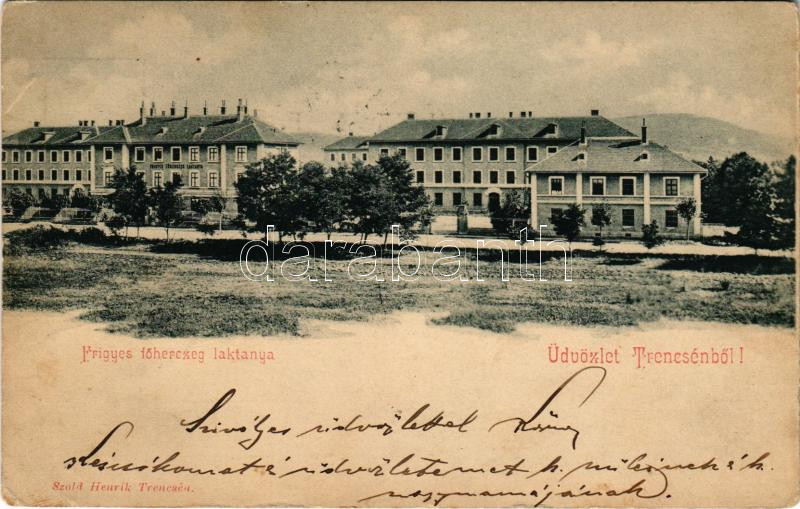 FRIGYES FŐHERCZEG LAKTANYA
darabanth
Frigyes főherczeg laktanya
Üdvözlet Trencsénből!
Szívélyes üdvözlettel
üdvözletemet k.
nagymamájának.
Szold Henrik Trencsén.